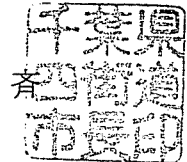 千葉県
斉
四街道
市長印